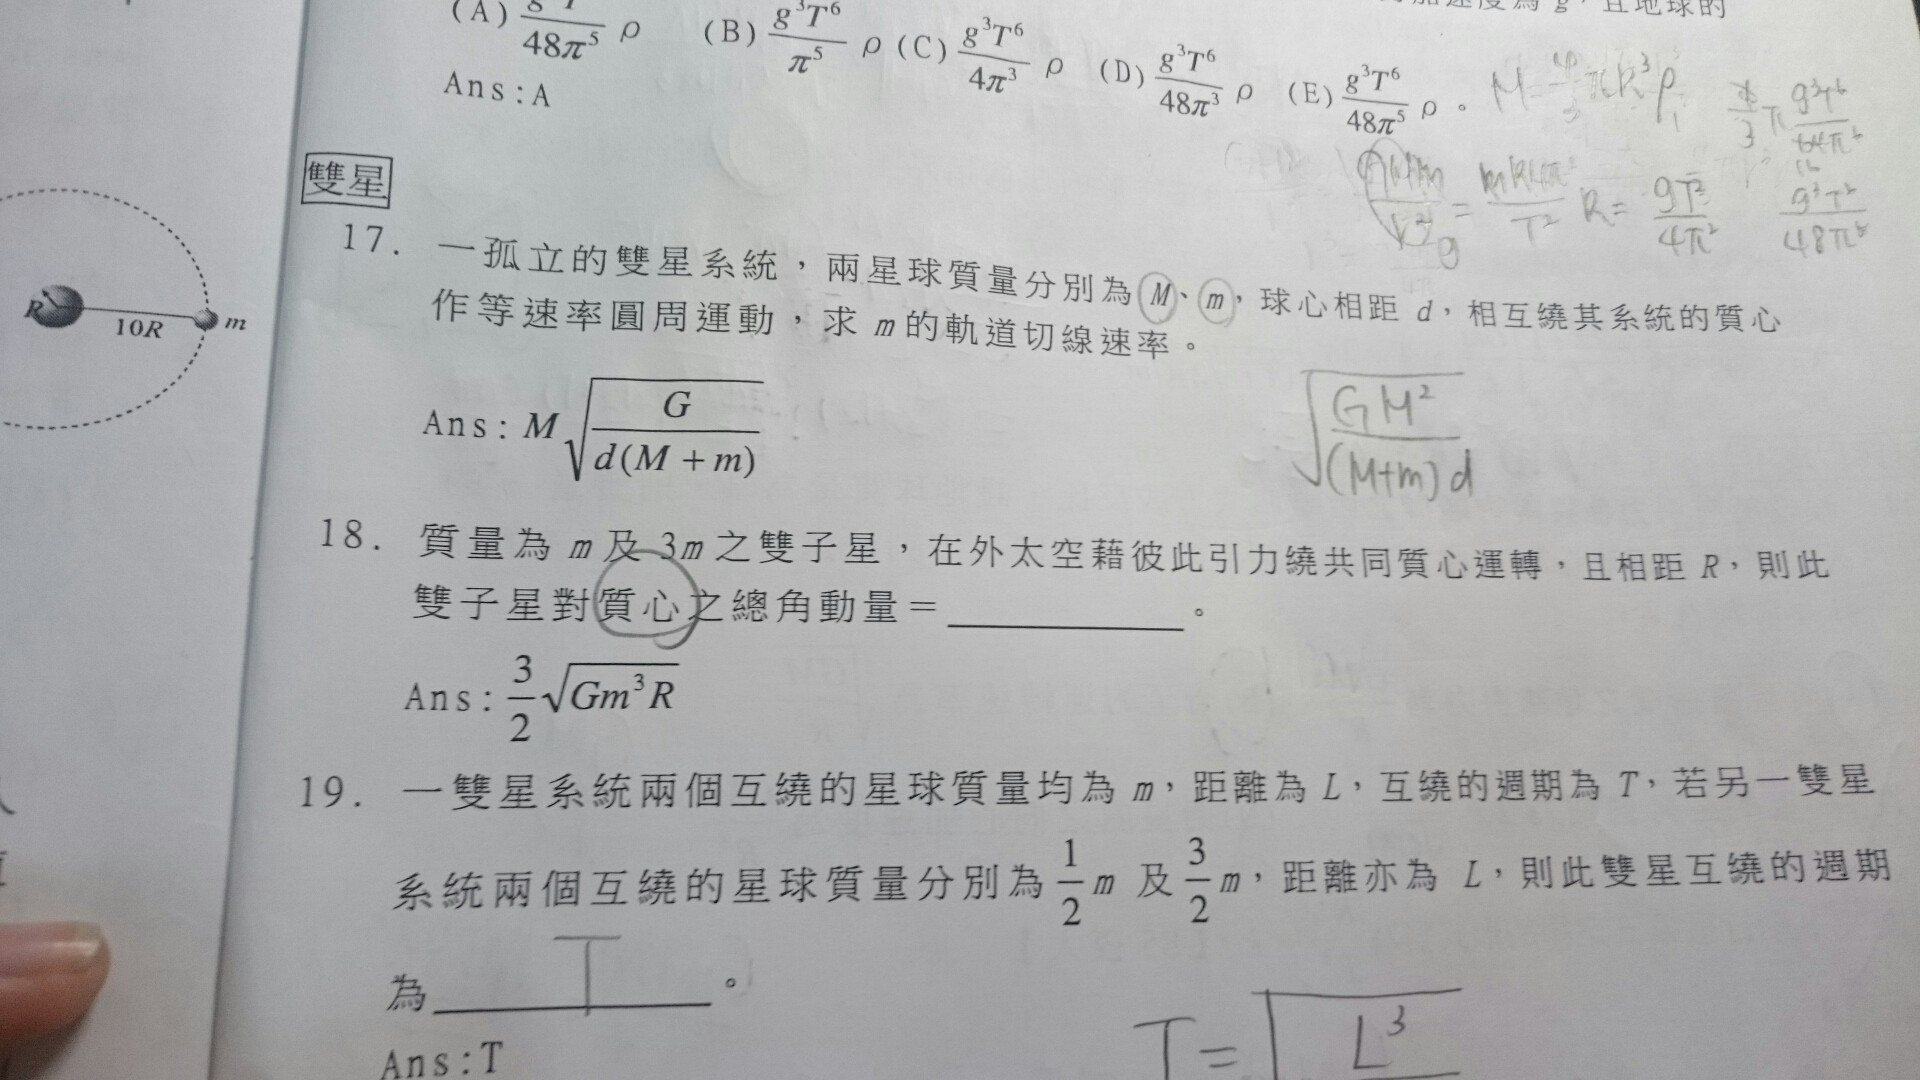 (A) 48π⁵ ρ (B) g³T⁶/π⁵ ρ (C) g³T⁶/4π³ ρ (D) g³T⁶/48π³ ρ (E) g³T⁶/48π⁵ ρ 。
Ans:A
R= gT²/4π²
雙星
17. 一孤立的雙星系統，兩星球質量分別為M、m，球心相距 d，相互繞其系統的質心
作等速率圓周運動，求 m的軌道切線速率。
R
10R
m
Ans: M√(G/d(M+m))
√(GM²/(M+m)d)
18. 質量為 m及 3m之雙子星，在外太空藉彼此引力繞共同質心運轉，且相距 R，則此
雙子星對質心之總角動量＝ 。
Ans: 3/2 √(Gm³R)
19. 一雙星系統兩個互繞的星球質量均為 m，距離為 L，互繞的週期為 T，若另一雙星
系統兩個互繞的星球質量分別為 1/2 m 及 3/2 m，距離亦為 L，則此雙星互繞的週期
為 T 。
Ans:T
T=√L³